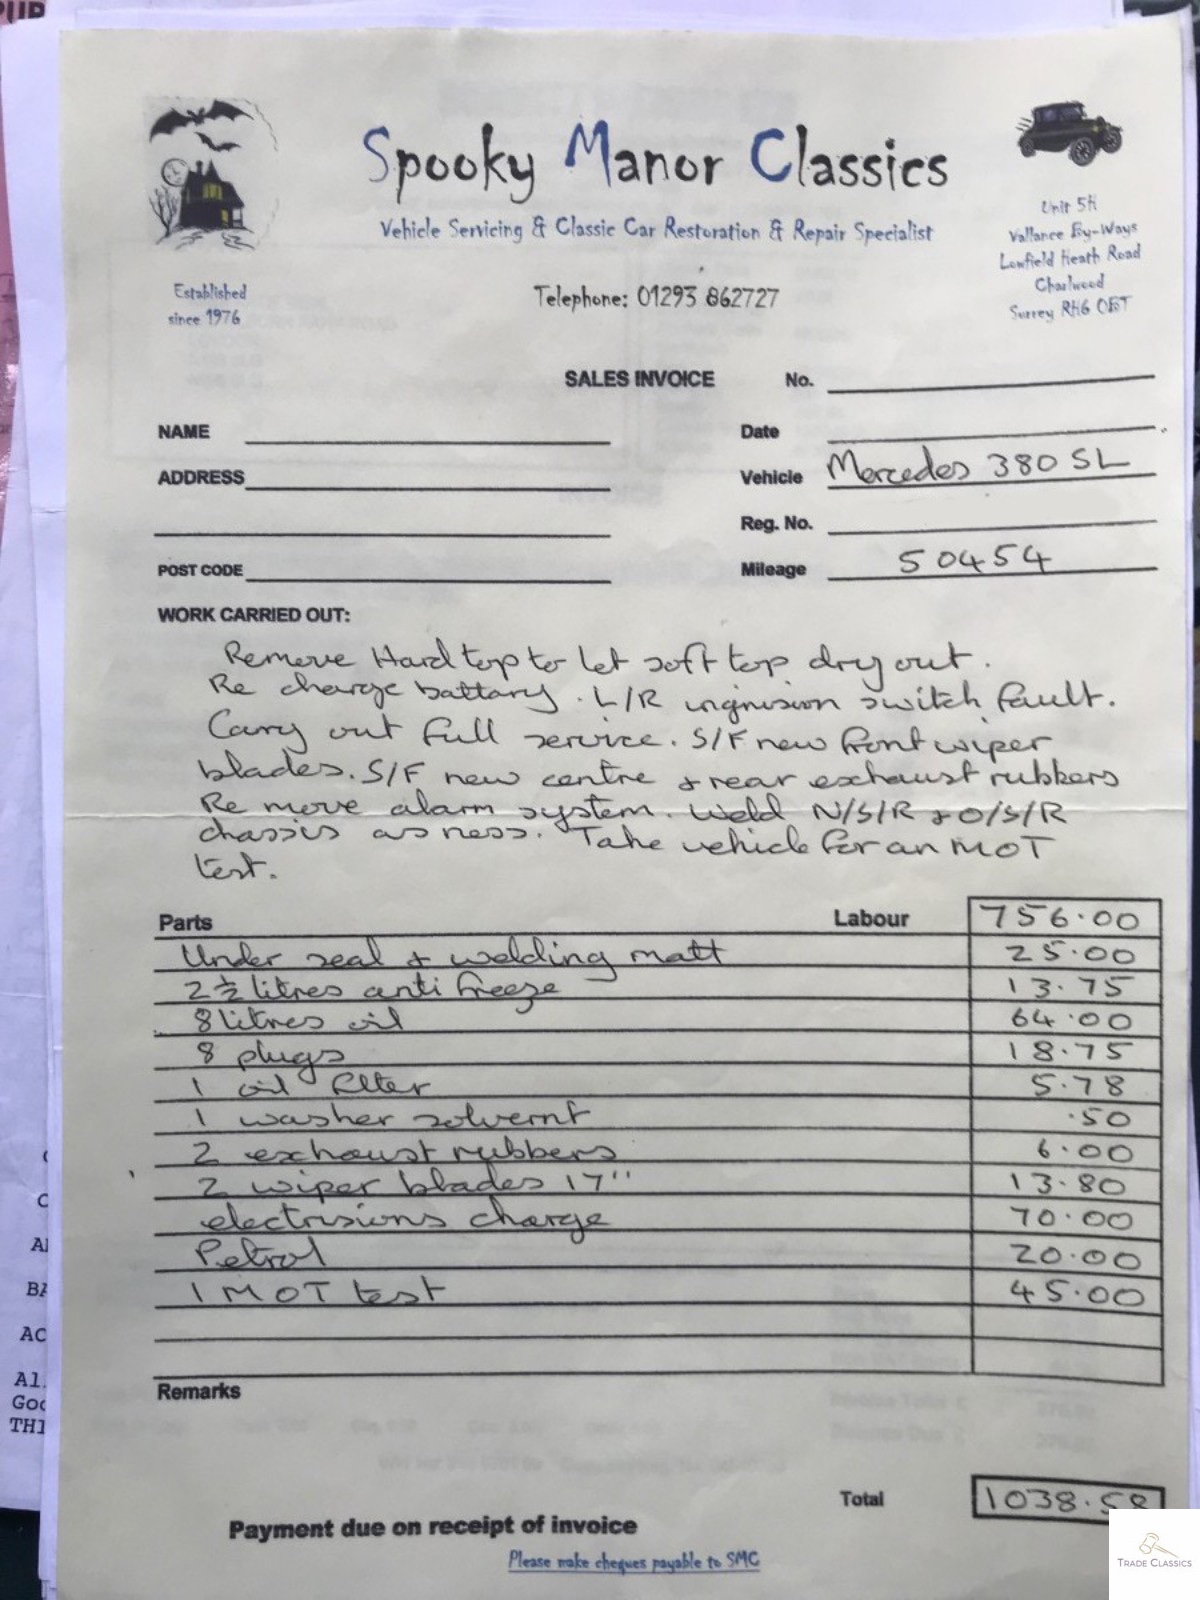 Spooky Manor Classics
Vehicle Servicing & Classic Car Restoration & Repair Specialist
Established
since 1976
Telephone: 01293 862727
Unit 5H
Vallance By-Ways
Lowfield Heath Road
Charlwood
Surrey RH6 0BT
SALES INVOICE No.
NAME
Date
ADDRESS
Vehicle Mercedes 380 SL
Reg. No.
POST CODE
Mileage 50454
WORK CARRIED OUT:
Remove Hard top to let soft top dry out.
Re charge battary. L/R ingnision switch fault.
Carry out full service. S/F new front wiper
blades. S/F new centre & rear exhaust rubbers
Re move alarm system. Weld N/S/R & O/S/R
chassis as ness. Take vehicle for an MOT
test.
Parts Labour 756.00
Under seal & welding matt 25.00
2½ litres anti freeze 13.75
8 litres oil 64.00
8 plugs 18.75
1 oil filter 5.78
1 washer solvernt .50
2 exhaust rubbers 6.00
2 wiper blades 17" 13.80
electrisions charge 70.00
Petrol 20.00
1 MOT test 45.00
Remarks
Total 1038.58
Payment due on receipt of invoice
Please make cheques payable to SMC
TRADE CLASSICS
C
A
BA
AC
Al
Goo
TH